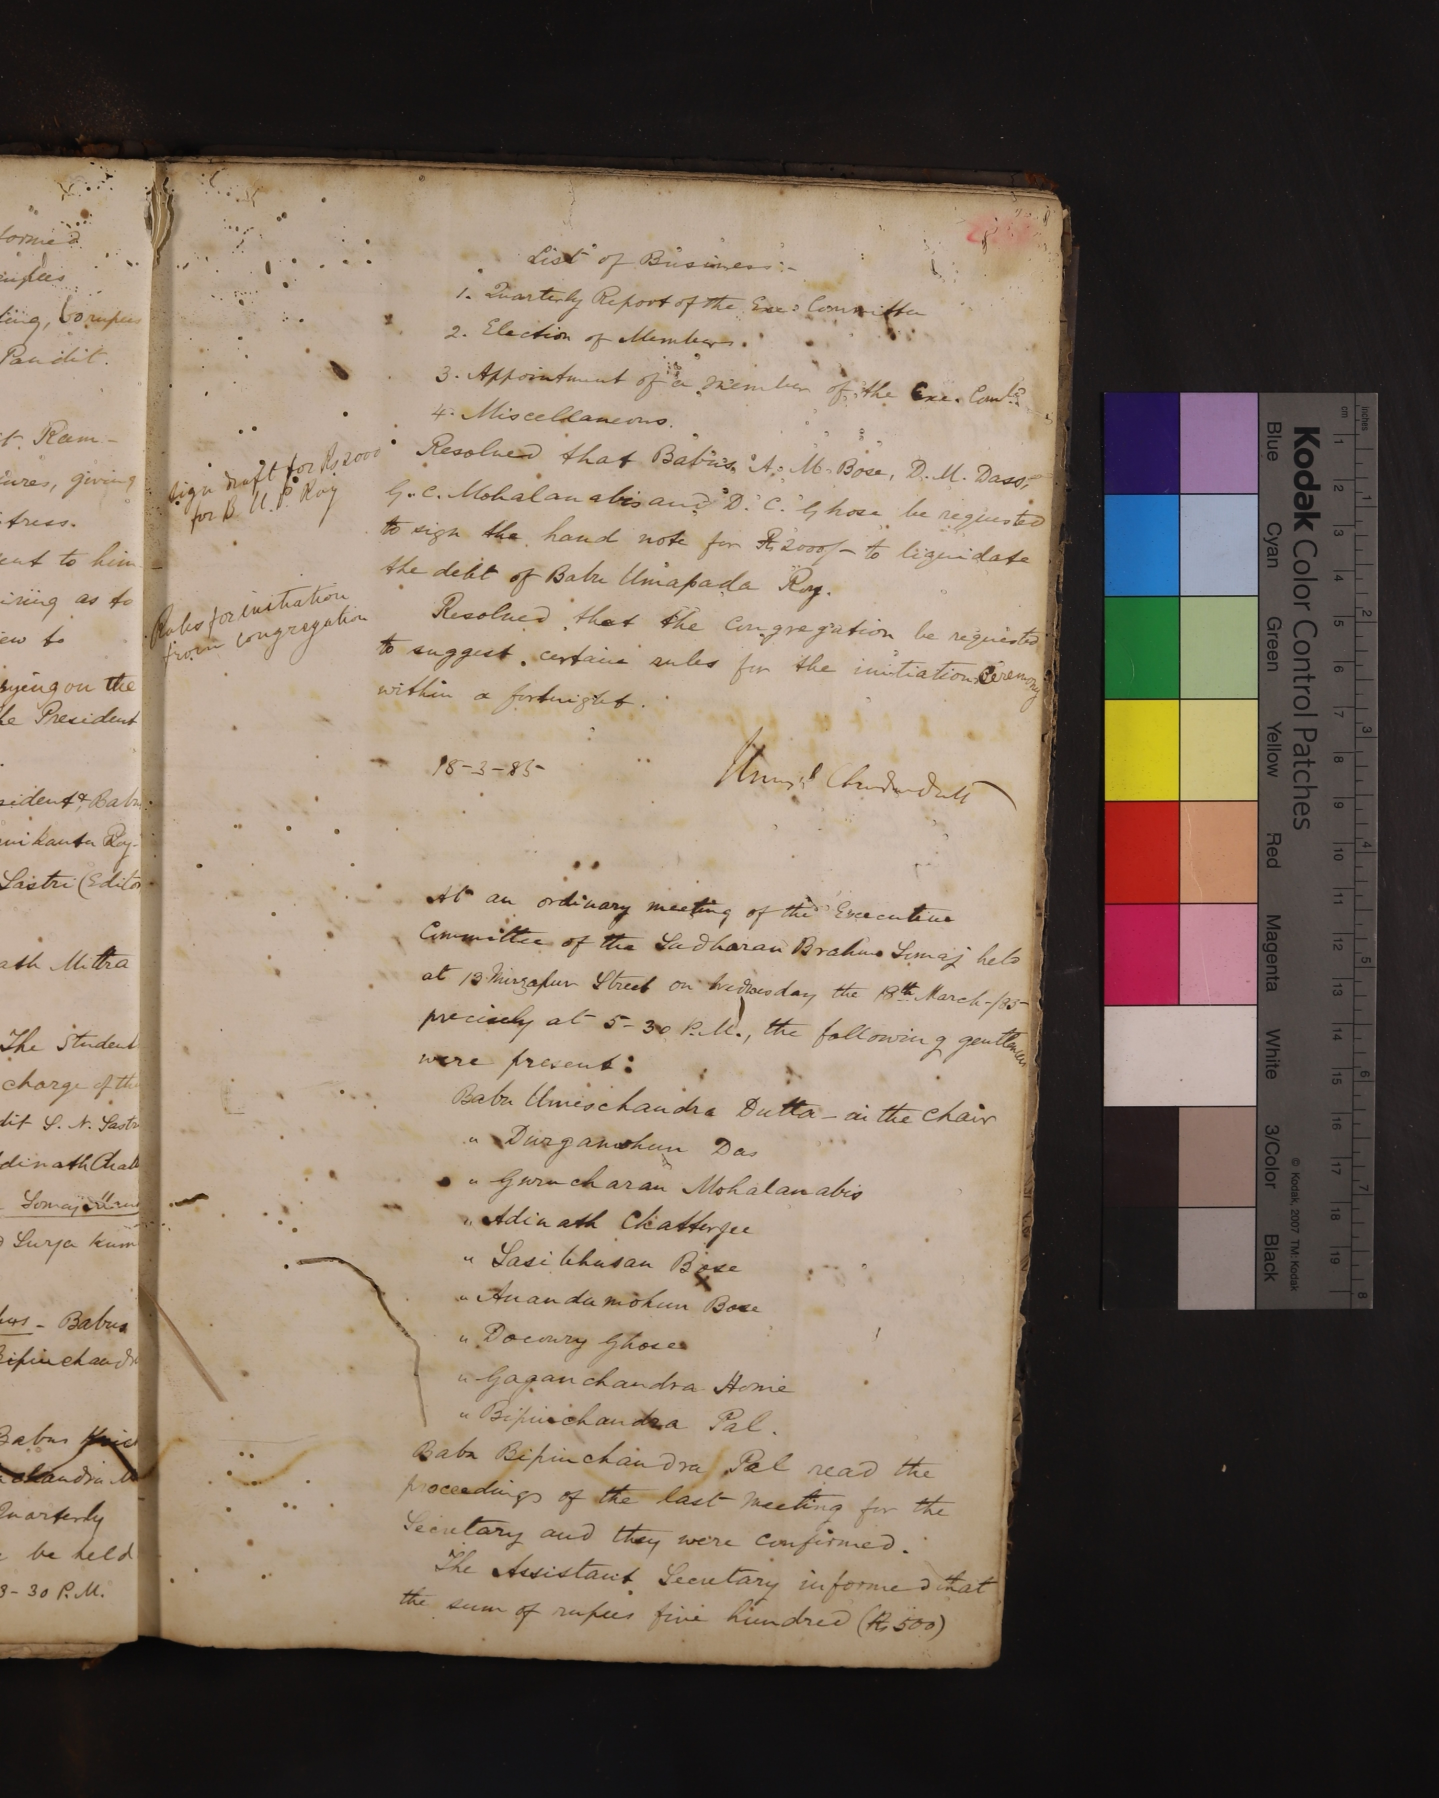 formed
rupees
ting, 60 rupees
Pandit.
t. Ram-
ures, giving
tress.
ent to him
iring as to
iew to
rying on the
he President
sident & Babu
nikanta Roy
Sastri (Editor
ath Mittra
The Student
charge of the
dit S. N. Sastri
dinath Chatt
Somaj
Surja Kum
- Babus
Bipinchandra
Babus
chandra M
Quarterly
be held
3-30 P.M.
8
List of Business:-
1. Quarterly Report of the Exe: Committee
2. Election of Members.
3. Appointment of a member of the Exe. Comtee.
4. Miscellaneous.
sign draft for Rs 2000
for B. U. P. Roy
Resolved that Babus A. M. Bose, D. M. Dass,
G. C. Mohalanabis and D. C. Ghose be requested
to sign the hand note for Rs 2000/- to liquidate
the debt of Babu Umapada Roy.
Rules for initiation
from congregation
Resolved that the congregation be requested
to suggest certain rules for the initiation Ceremony
within a fortnight.
18-3-85
Umesh Chandra Dutt
At an ordinary meeting of the Executive
Committee of the Sadharan Brahmo Somaj held
at 13 Mirzapur Street on Wednesday the 18th March-/85-
precisely at 5-30 P.M., the following gentlemen
were present:
Babu Umeschandra Dutta - in the chair
" Durgamohun Das
" Gurucharan Mohalanabis
" Adinath Chatterjee
" Sasibhusan Bose
" Anandamohun Bose
" Docowry Ghose
" Gaganchandra Home
" Bipinchandra Pal.
Babu Bipinchandra Pal read the
proceedings of the last meeting for the
Secretary and they were confirmed.
The Assistant Secretary informed that
the sum of rupees five hundred (Rs 500)
Kodak Color Control Patches
Blue
Cyan
Green
Yellow
Red
Magenta
White
3/Color
Black
© Kodak, 2007 TM: Kodak
cm 1 2 3 4 5 6 7 8 9 10 11 12 13 14 15 16 17 18 19
inches 1 2 3 4 5 6 7 8